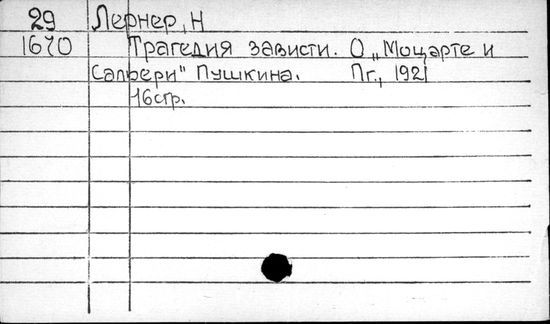 29 Лернер, Н
1670 Трагедия зависти. О „Моцарте и
Сальери" Пушкина. Пг., 1921
16стр.